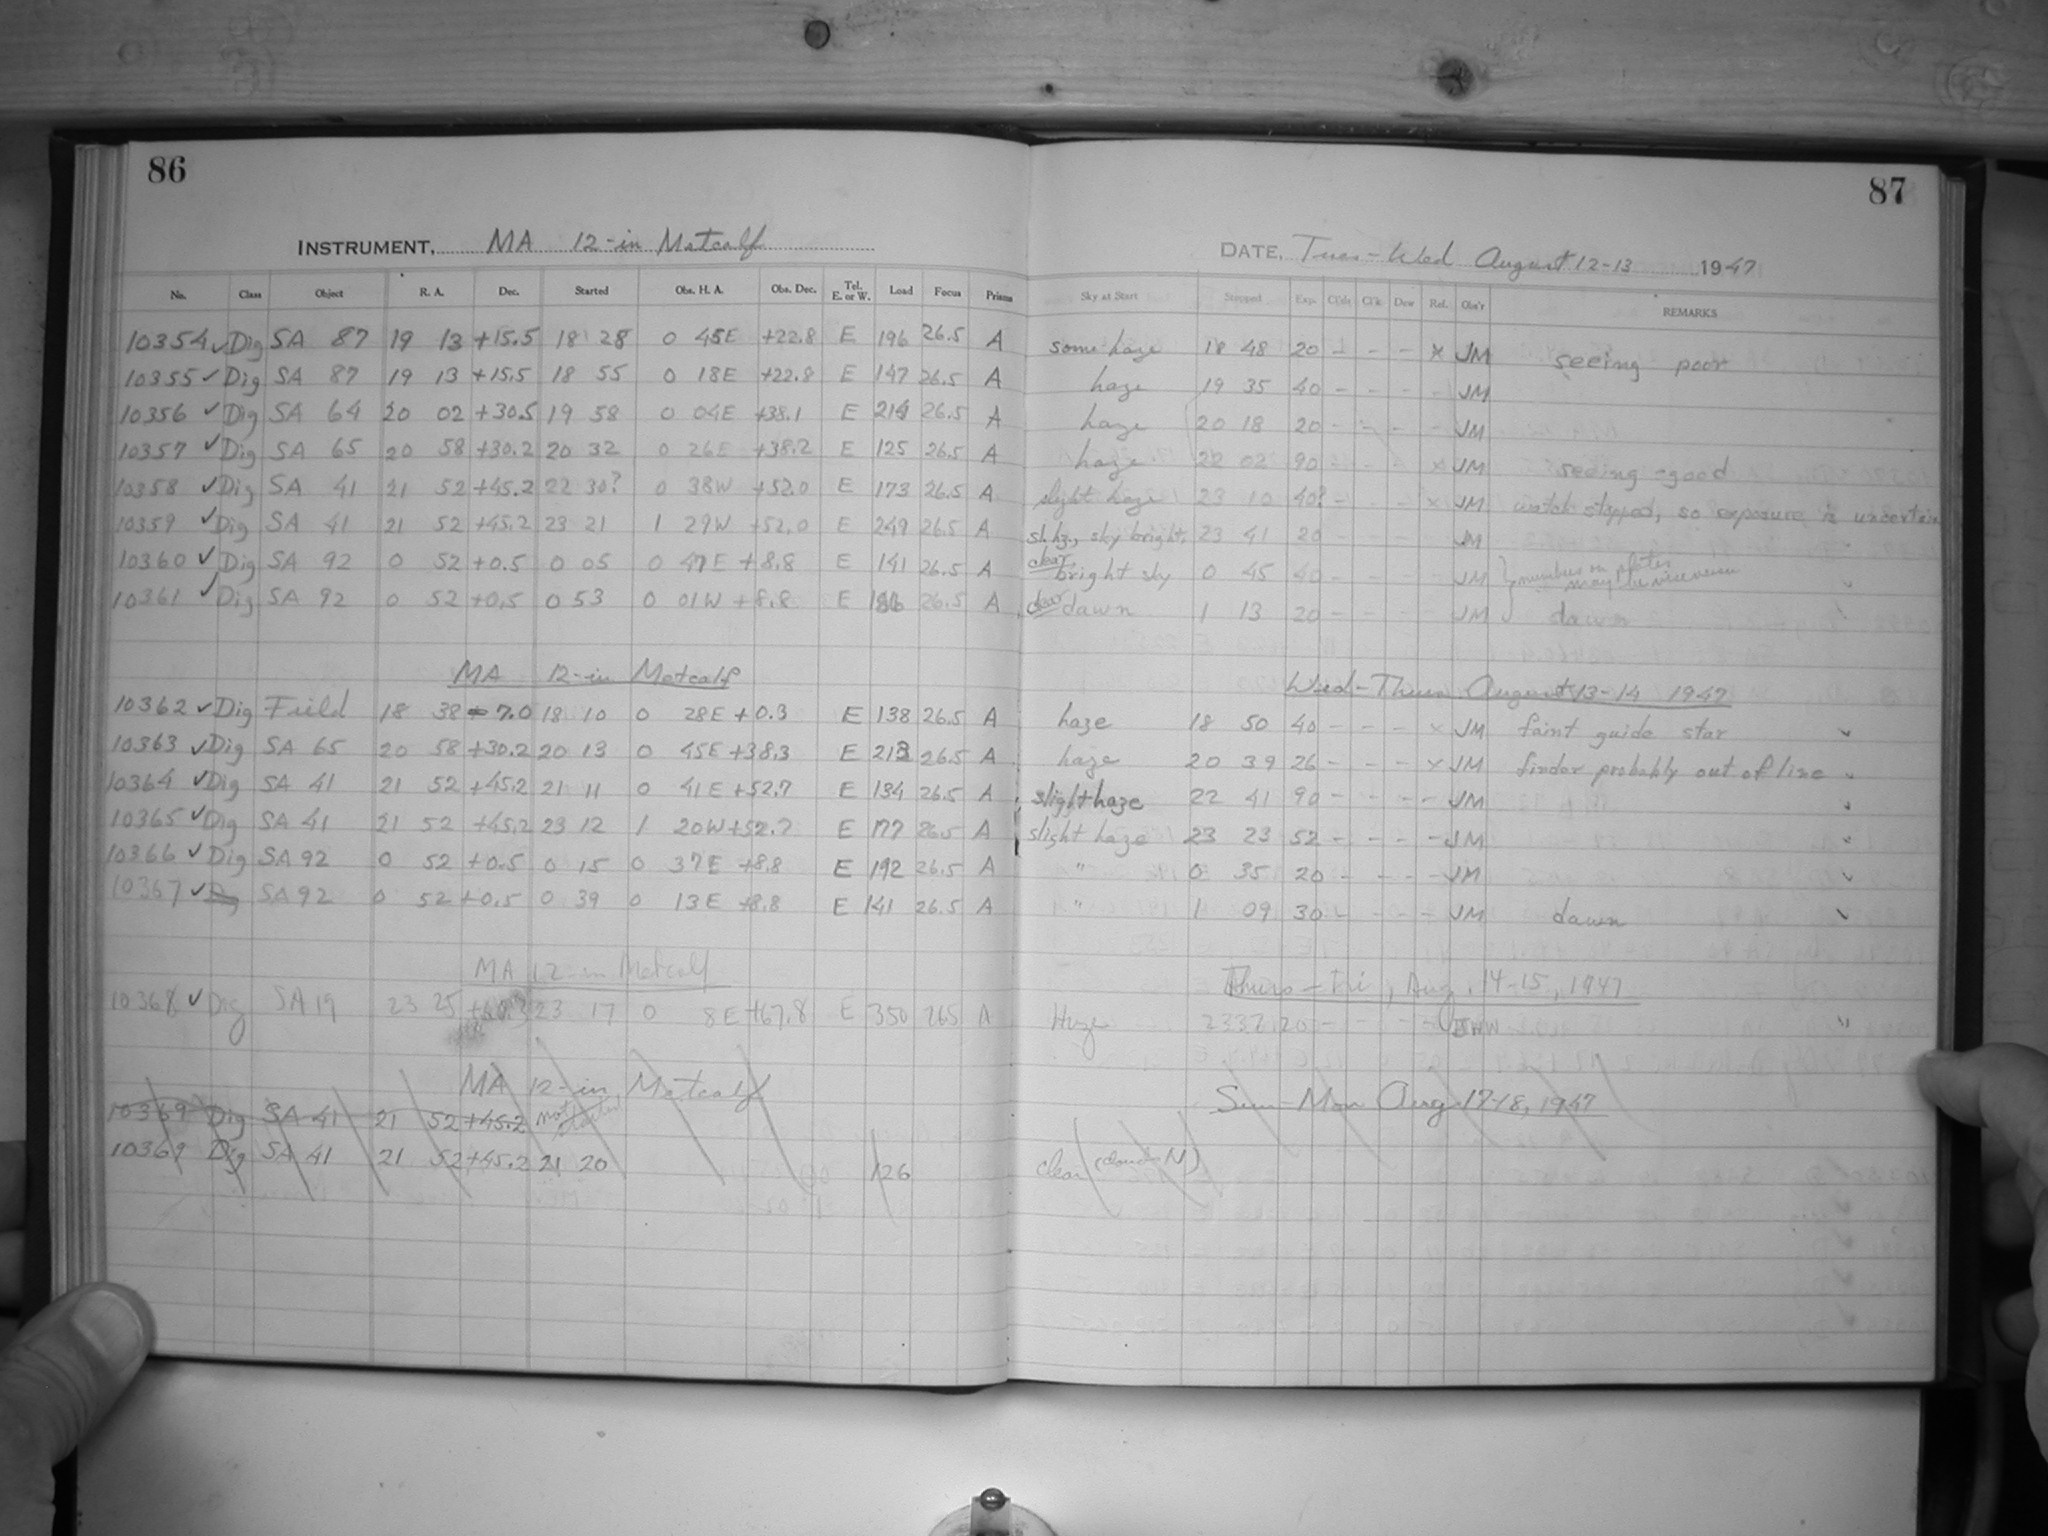 86
87
INSTRUMENT, MA 12-in Metcalf
DATE, Tues-Wed August 12-13 1947
No. Class Object R. A. Dec. Started Obs. H. A. Obs. Dec. Tel. E. or W. Load Focus Prisms Sky at Start Stopped Exp. Cl'ds Cl'k Dew Ref. Obs'r REMARKS
10354 ✓ Dig SA 87 19 13 +15.5 18 28 0 45E +22.8 E 196 26.5 A some haze 18 48 20 - - - x JM seeing poor
10355 ✓ Dig SA 87 19 13 +15.5 18 55 0 18E +22.8 E 147 26.5 A haze 19 35 40 - - - - JM
10356 ✓ Dig SA 64 20 02 +30.5 19 58 0 04E +38.1 E 214 26.5 A haze 20 18 20 - - - - JM
10357 ✓ Dig SA 65 20 58 +30.2 20 32 0 26E +38.2 E 125 26.5 A haze 22 02 90 - - - x JM seeing good
10358 ✓ Dig SA 41 21 52 +45.2 22 30? 0 38W +52.0 E 173 26.5 A slight haze 23 10 40? - - - x JM watch stopped, so exposure is uncertain
10359 ✓ Dig SA 41 21 52 +45.2 23 21 1 29W +52.0 E 249 26.5 A sl. hz., sky bright. 23 41 20 - - - JM
10360 ✓ Dig SA 92 0 52 +0.5 0 05 0 47E +8.8 E 141 26.5 A clear bright sky 0 45 40 - - - - JM numbers on plates may be vice versa
10361 ✓ Dig SA 92 0 52 +0.5 0 53 0 01W +8.8 E 26.5 A clear dawn 1 13 20 - - - - JM dawn
MA 12-in Metcalf Wed-Thurs August 13-14 1947
10362 ✓ Dig Field 18 38 -7.0 18 10 0 28E +0.3 E 138 26.5 A haze 18 50 40 - - - x JM faint guide star ✓
10363 ✓ Dig SA 65 20 58 +30.2 20 13 0 45E +38.3 E 213 26.5 A haze 20 39 26 - - - x JM finder probably out of line ✓
10364 ✓ Dig SA 41 21 52 +45.2 21 11 0 41E +52.7 E 134 26.5 A slight haze 22 41 90 - - - - JM ✓
10365 ✓ Dig SA 41 21 52 +45.2 23 12 1 20W +52.7 E 177 26.5 A slight haze 23 23 52 - - - - JM ✓
10366 ✓ Dig SA 92 0 52 +0.5 0 15 0 37E +8.8 E 192 26.5 A " 0 35 20 - - - - JM ✓
10367 ✓ Dig SA 92 0 52 +0.5 0 39 0 13E +8.8 E 141 26.5 A " 1 09 30 - - - - JM dawn ✓
MA 12-in Metcalf Thurs-Fri, Aug. 14-15, 1947
10368 ✓ Dig SA 19 23 25 23 17 0 8E +67.8 E 350 265 A Haze 23 37 20 - - - -
MA 12-in Metcalf Sun-Mon Aug 17-18, 1947
10369 Dig SA 41 21 52 +45.2 not started
10369 Dig SA 41 21 52 +45.2 21 20 126 clear (clouds N)